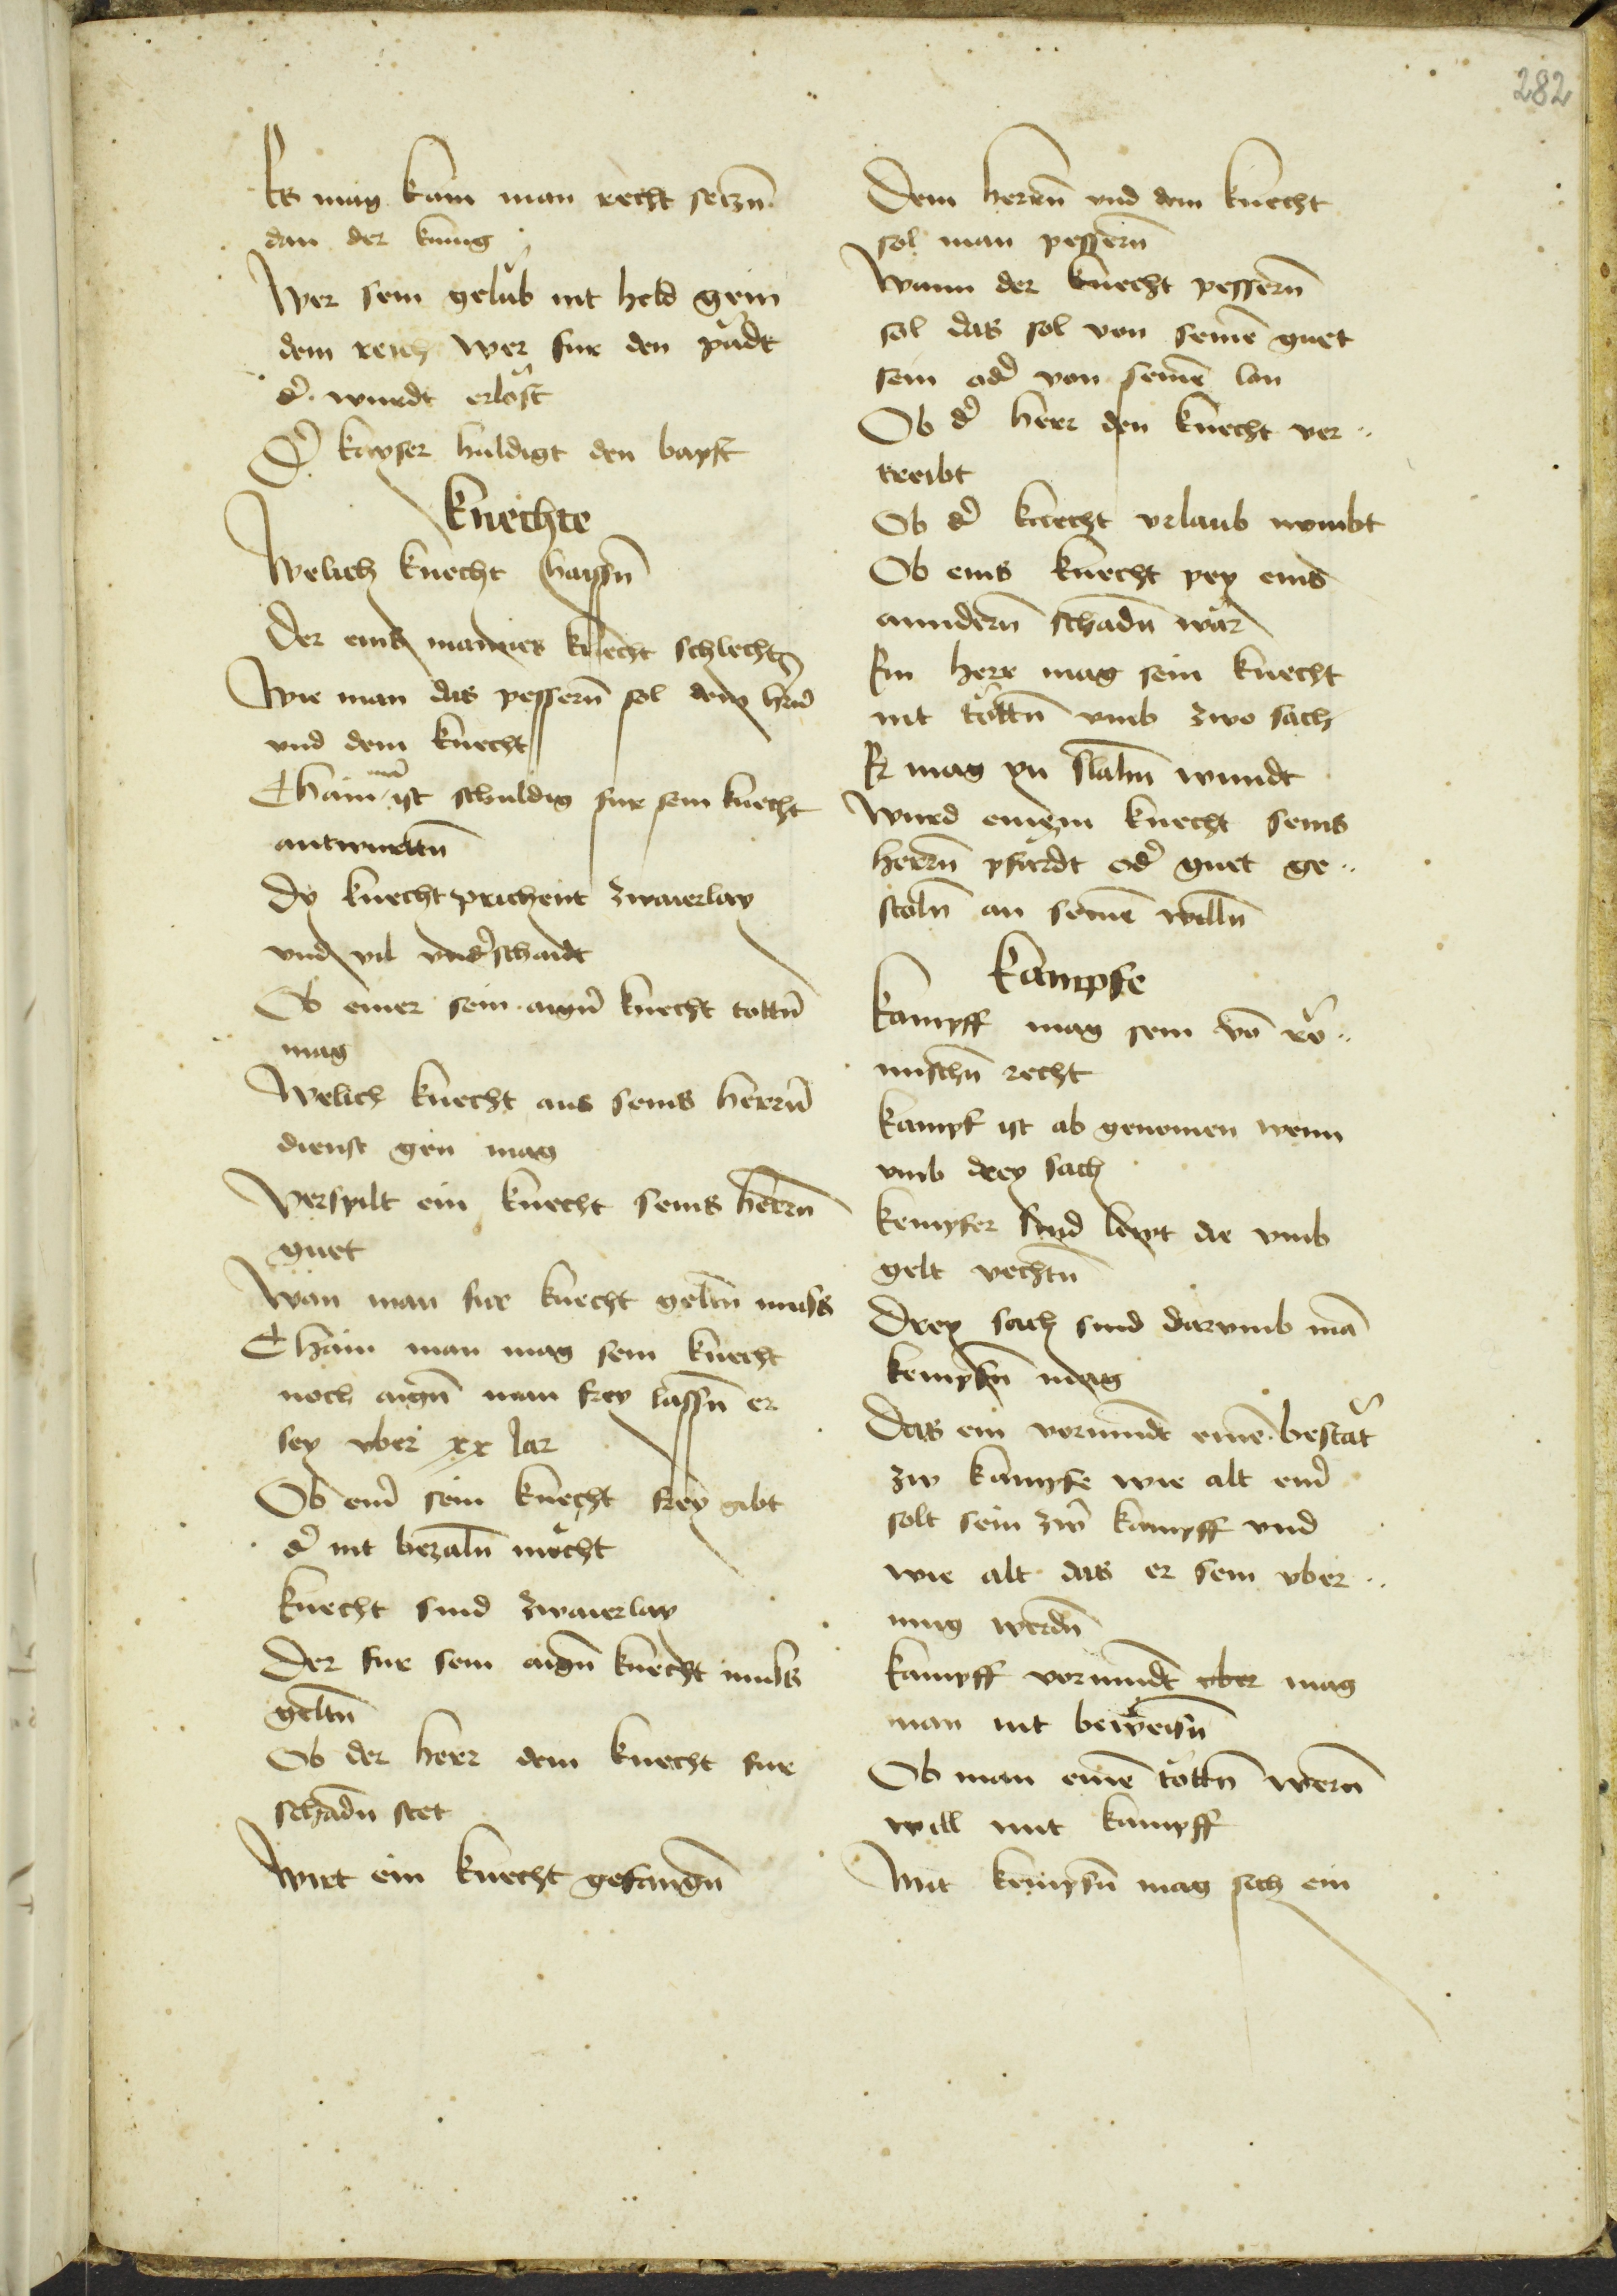 282
Es mag kain man recht setzn̄
dan der kunig
Wer sein gelub nit held gein
dem reich wer fur den purdt
d' wurdt erlöst
D' kayser huldigt den bapst
Knechte
Welich knecht haissn̄
Der eins mannes knecht schlecht
Wie man das pessern̄ sol dem hrn̄
vnd dem knecht
Chain man̄ ist schuldig fur sein knecht
antwurttn̄
Dy knecht prichent zwaierlay
vnd vil vnd'schaidt
Ob einer sein aign̄ knecht tottn̄
mag
Welich knecht aus seins herrn̄
dienst gen mag
Verspilt ein knecht seins herrn̄
guet
Wan man fur knecht geltn̄ muss
Chain man mag sein knecht
noch aign̄ man frey lassn̄ er
sey vber xx Jar
Ob ein' sein knecht frey gibt
d' nit bezaln̄ mocht
Knecht sind zwaierlay
Der fur sein aign̄ knecht muss
geltn̄
Ob der herr dem knecht fur
schadn̄ stet
Wirt ein knecht gefangn̄
Dem herrn̄ vnd dem knecht
sol man pessern̄
Wann der knecht pessern̄
sol das sol von seinē guet
sein od' von seinē lon
Ob d' herr den knecht ver
treibt
Ob d' knecht vrlaub nymbt
Ob eins knecht pey eins
anndern̄ schadn̄ wär
Ein herr mag sein knecht
nit töttn̄ vmb zwo sach
Er mag yn slahn̄ wundt
Wurd einem knecht seins
herrn̄ pfärdt od' guet ge
stoln̄ an seinē willn̄
Kampfe
Kampff mag sein vō rö
mischn̄ recht
Kampf ist ab genomen wenn
vmb drey sach
Kempfer sind lewt die vmb
gelt vechtn̄
Drey sach sind darvmb mā
kempfn̄ mag
Das ein vormundt einē bestät
zw kampfe wie alt ein'
solt sein zw kampff vnd
wie alt das er sein vber
mug werdn̄
Kampff vormundt vber mag
man nit beweisn̄
Ob man einē töttn̄ wern̄
will mit kampff
Mit kempfn̄ mag sich ein